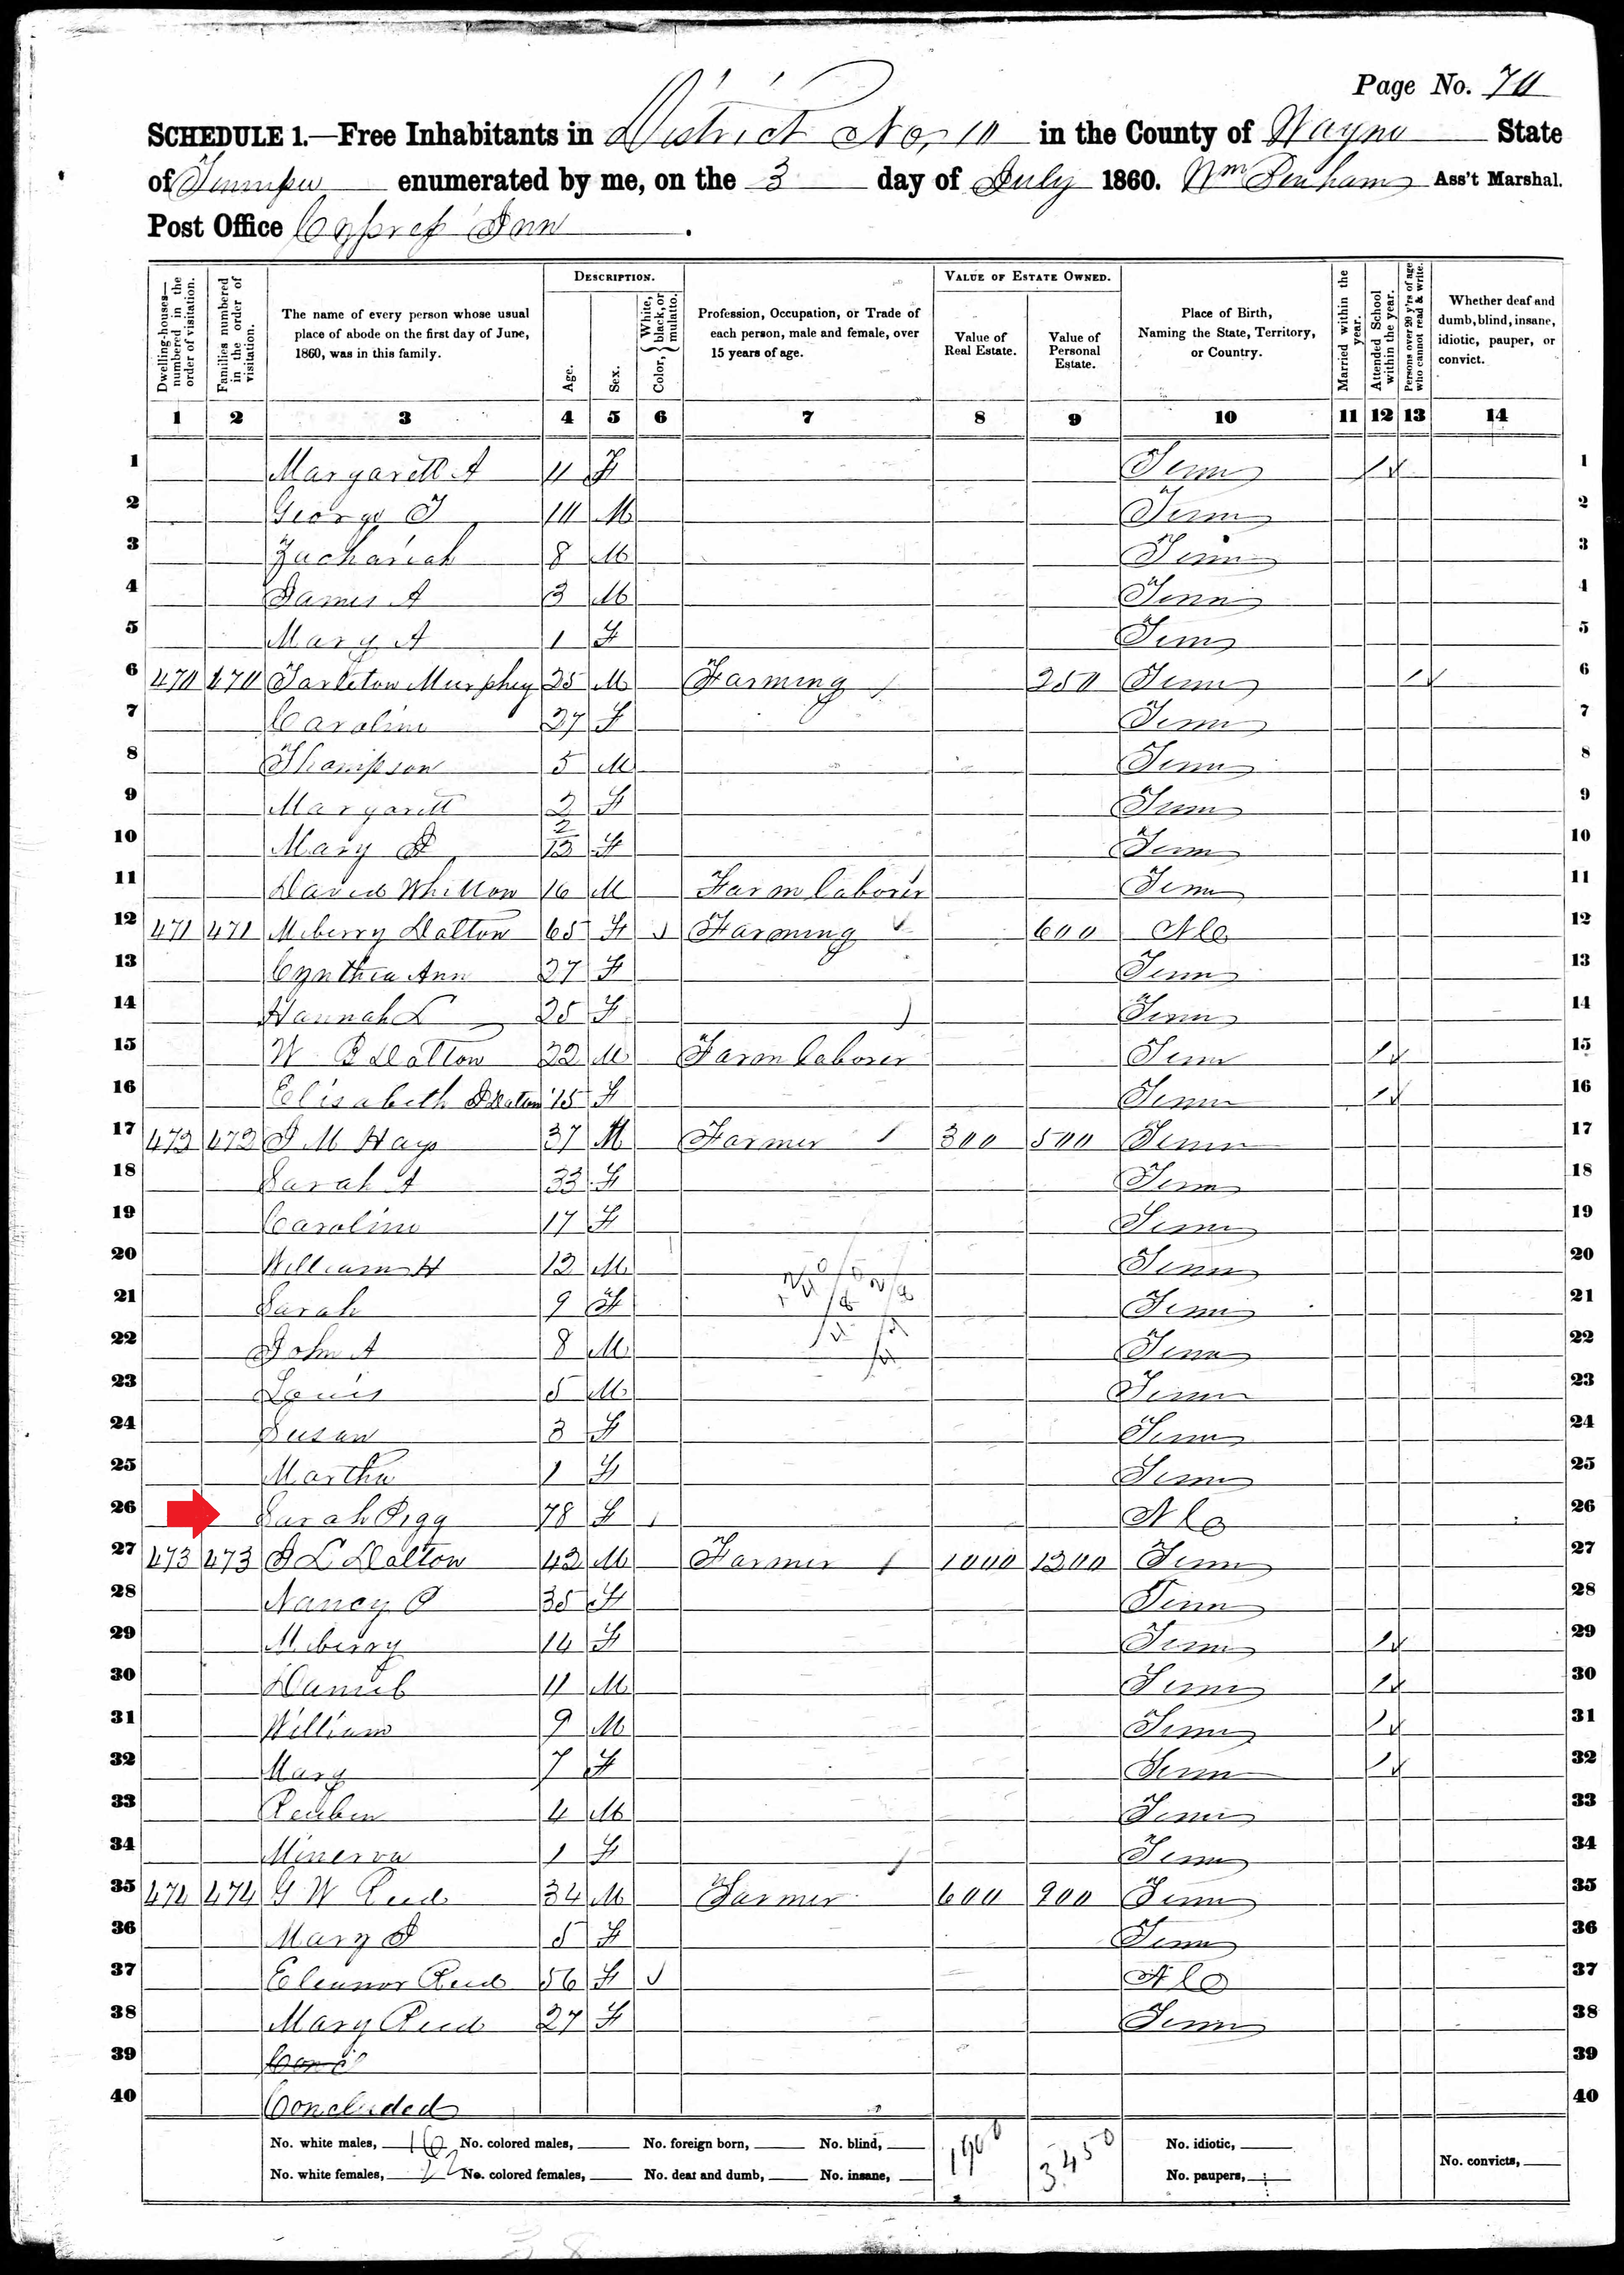 Page No. 70
SCHEDULE 1.—Free Inhabitants in District No. 10 in the County of Wayne State
of Tennessee enumerated by me, on the 3 day of July 1860. Wm Ass't Marshal.
Post Office Cypress Inn.
DESCRIPTION. VALUE OF ESTATE OWNED.
Dwelling-houses—numbered in the order of visitation. Families numbered in the order of visitation. The name of every person whose usual place of abode on the first day of June, 1860, was in this family. Age. Sex. Color, { White, black, or mulatto. Profession, Occupation, or Trade of each person, male and female, over 15 years of age. Value of Real Estate. Value of Personal Estate. Place of Birth, Naming the State, Territory, or Country. Married within the year. Attended School within the year. Persons over 20 y'rs of age who cannot read & write. Whether deaf and dumb, blind, insane, idiotic, pauper, or convict.
1 2 3 4 5 6 7 8 9 10 11 12 13 14
1 Margarett A 11 F Tenn 1 1
2 George T 10 M Tenn 2
3 Zachariah 8 M Tenn 3
4 James A 3 M Tenn 4
5 Mary A 1 F Tenn 5
6 470 470 Tarleton Murphey 25 M Farming 250 Tenn 1 6
7 Caroline 27 F Tenn 7
8 Thompson 5 M Tenn 8
9 Margarett 2 F Tenn 9
10 Mary J 2/12 F Tenn 10
11 David Whitton 16 M Farm laborer Tenn 11
12 471 471 Mberry Dalton 65 F Farming 600 NC 12
13 Cynthia Ann 27 F Tenn 13
14 Hannah L 25 F Tenn 14
15 W Dalton 22 M Farm laborer Tenn 1 15
16 Elisabeth J Dalton 15 F Tenn 1 16
17 472 472 J M Hays 37 M Farmer 300 500 Tenn 17
18 Sarah A 33 F Tenn 18
19 Caroline 17 F Tenn 19
20 William H 12 M Tenn 20
21 Sarah 9 F Tenn 21
22 John A 8 M Tenn 22
23 Louis 5 M Tenn 23
24 Susan 3 F Tenn 24
25 Martha 1 F Tenn 25
26 Sarah Pigg 78 F NC 26
27 473 473 J L Dalton 42 M Farmer 1000 1200 Tenn 27
28 Nancy P 35 F Tenn 28
29 Mberry 14 F Tenn 1 29
30 Daniel 11 M Tenn 1 30
31 William 9 M Tenn 1 31
32 Mary 7 F Tenn 1 32
33 Reuben 4 M Tenn 33
34 Minerva 1 F Tenn 34
35 474 474 G W Reed 34 M Farmer 600 900 Tenn 35
36 Mary J 5 F Tenn 36
37 Eleanor Reed 56 F NC 37
38 Mary Reed 27 F Tenn 38
39 39
40 Concluded 40
No. white males, 16 No. colored males, No. foreign born, No. blind, 1900 3450 No. idiotic,
No. white females, 22 No. colored females, No. deaf and dumb, No. insane, No. paupers, No. convicts,